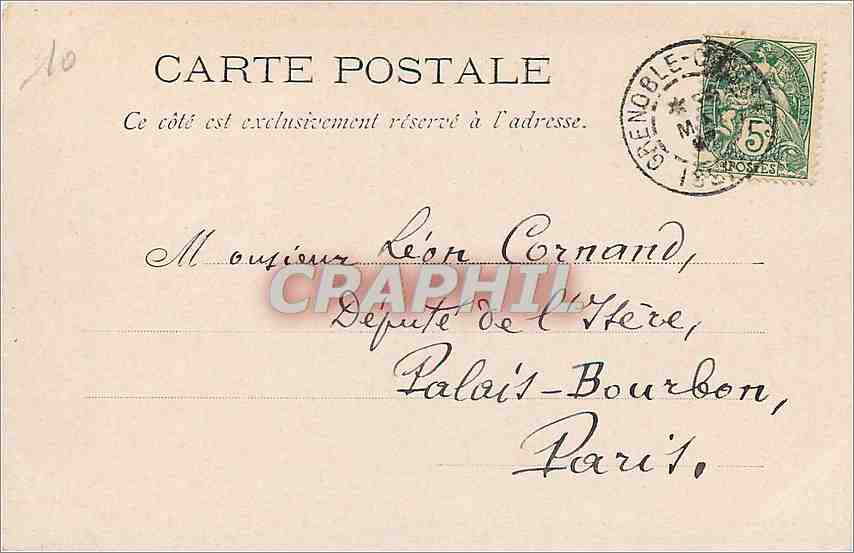 10
CARTE POSTALE
Ce côté est exclusivement réservé à l'adresse.
GRENOBLE
5c
POSTES
Monsieur Léon Cornand,
CRAPHIL
Député de l'Isère,
Palais-Bourbon,
Paris.